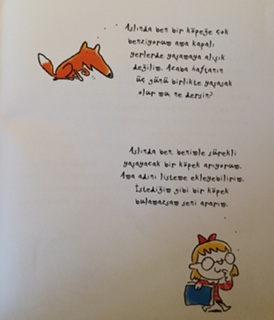 Aslında ben bir köpeğe çok
benziyorum ama kapalı
yerlerde yaşamaya alışık
değilim. Acaba haftanın
üç günü birlikte yaşasak
olur mu ne dersin?
Aslında ben benimle sürekli
yaşayacak bir köpek arıyorum.
Ama adını listeme ekleyebilirim.
İstediğim gibi bir köpek
bulamazsam seni ararım.